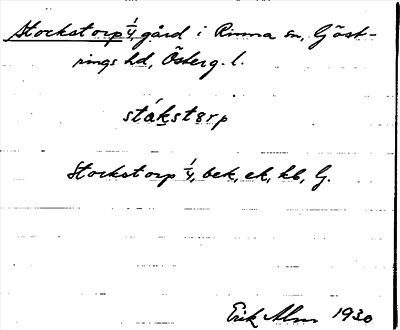 Stockstorp 1/4, gård i Rinna sn, Göst-
rings hd, Österg. l.
stákstɜrp
Stockstorp 1/4, bek, ek, kb, G.
Erik Alm 1930